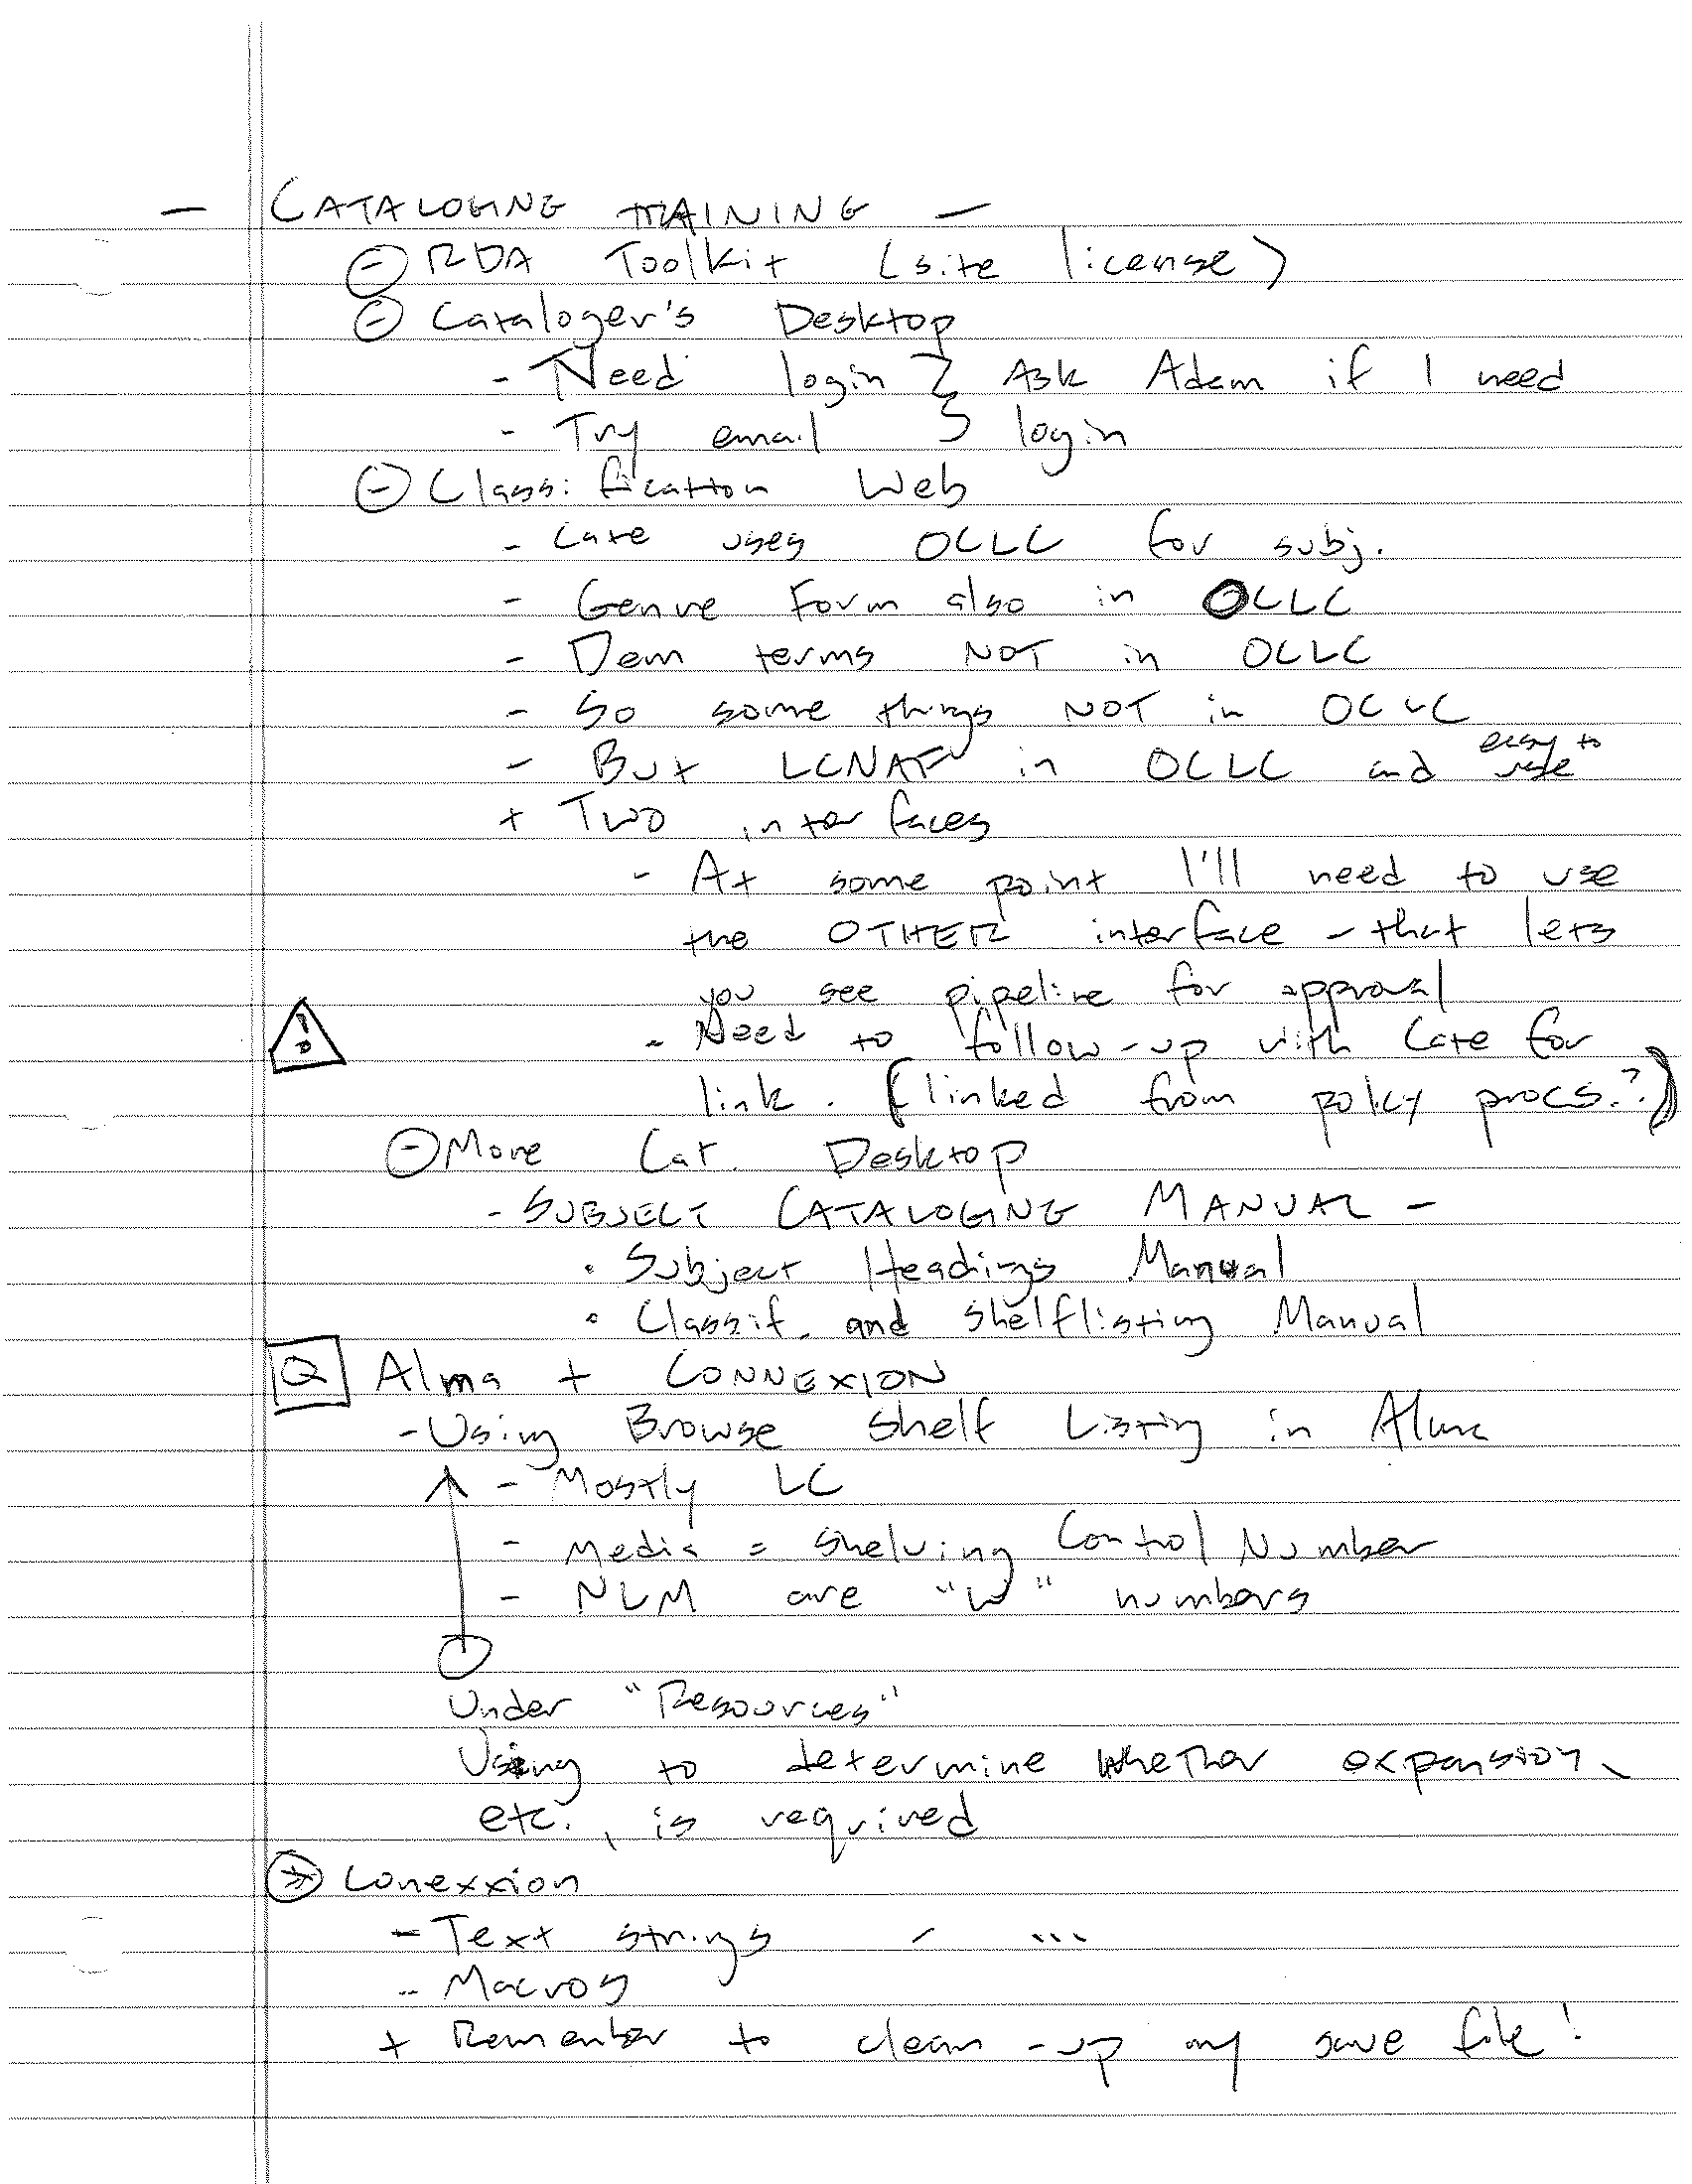 - CATALOGING TRAINING -
⊖ RDA Toolkit (site license)
⊖ Cataloger's Desktop
- Need login } Ask Adam if I need
- Try email } login
⊖ Classification Web
- Cate uses OCLC for subj.
- Genre Form also in OCLC
- Dem terms NOT in OCLC
- So some things NOT in OCLC
- But LCNAF in OCLC and easy to use
+ Two interfaces
- At some point I'll need to use
the OTHER interface - that lets
you see pipeline for approval
! - Need to follow-up with Cate for
link. (linked from policy procs.?)
⊖ More Cat. Desktop
- SUBJECT CATALOGING MANUAL -
• Subject Headings Manual
• Classif. and Shelflisting Manual
Q Alma + CONNEXION
- Using Browse Shelf Listing in Alma
- Mostly LC
- Media = Shelving Control Number
- NLM are "W" numbers
Under "Resources"
Using to determine whether expansion,
etc., is required
Conexxion
- Text strings - ...
- Macros
+ Remember to clean-up my save file!